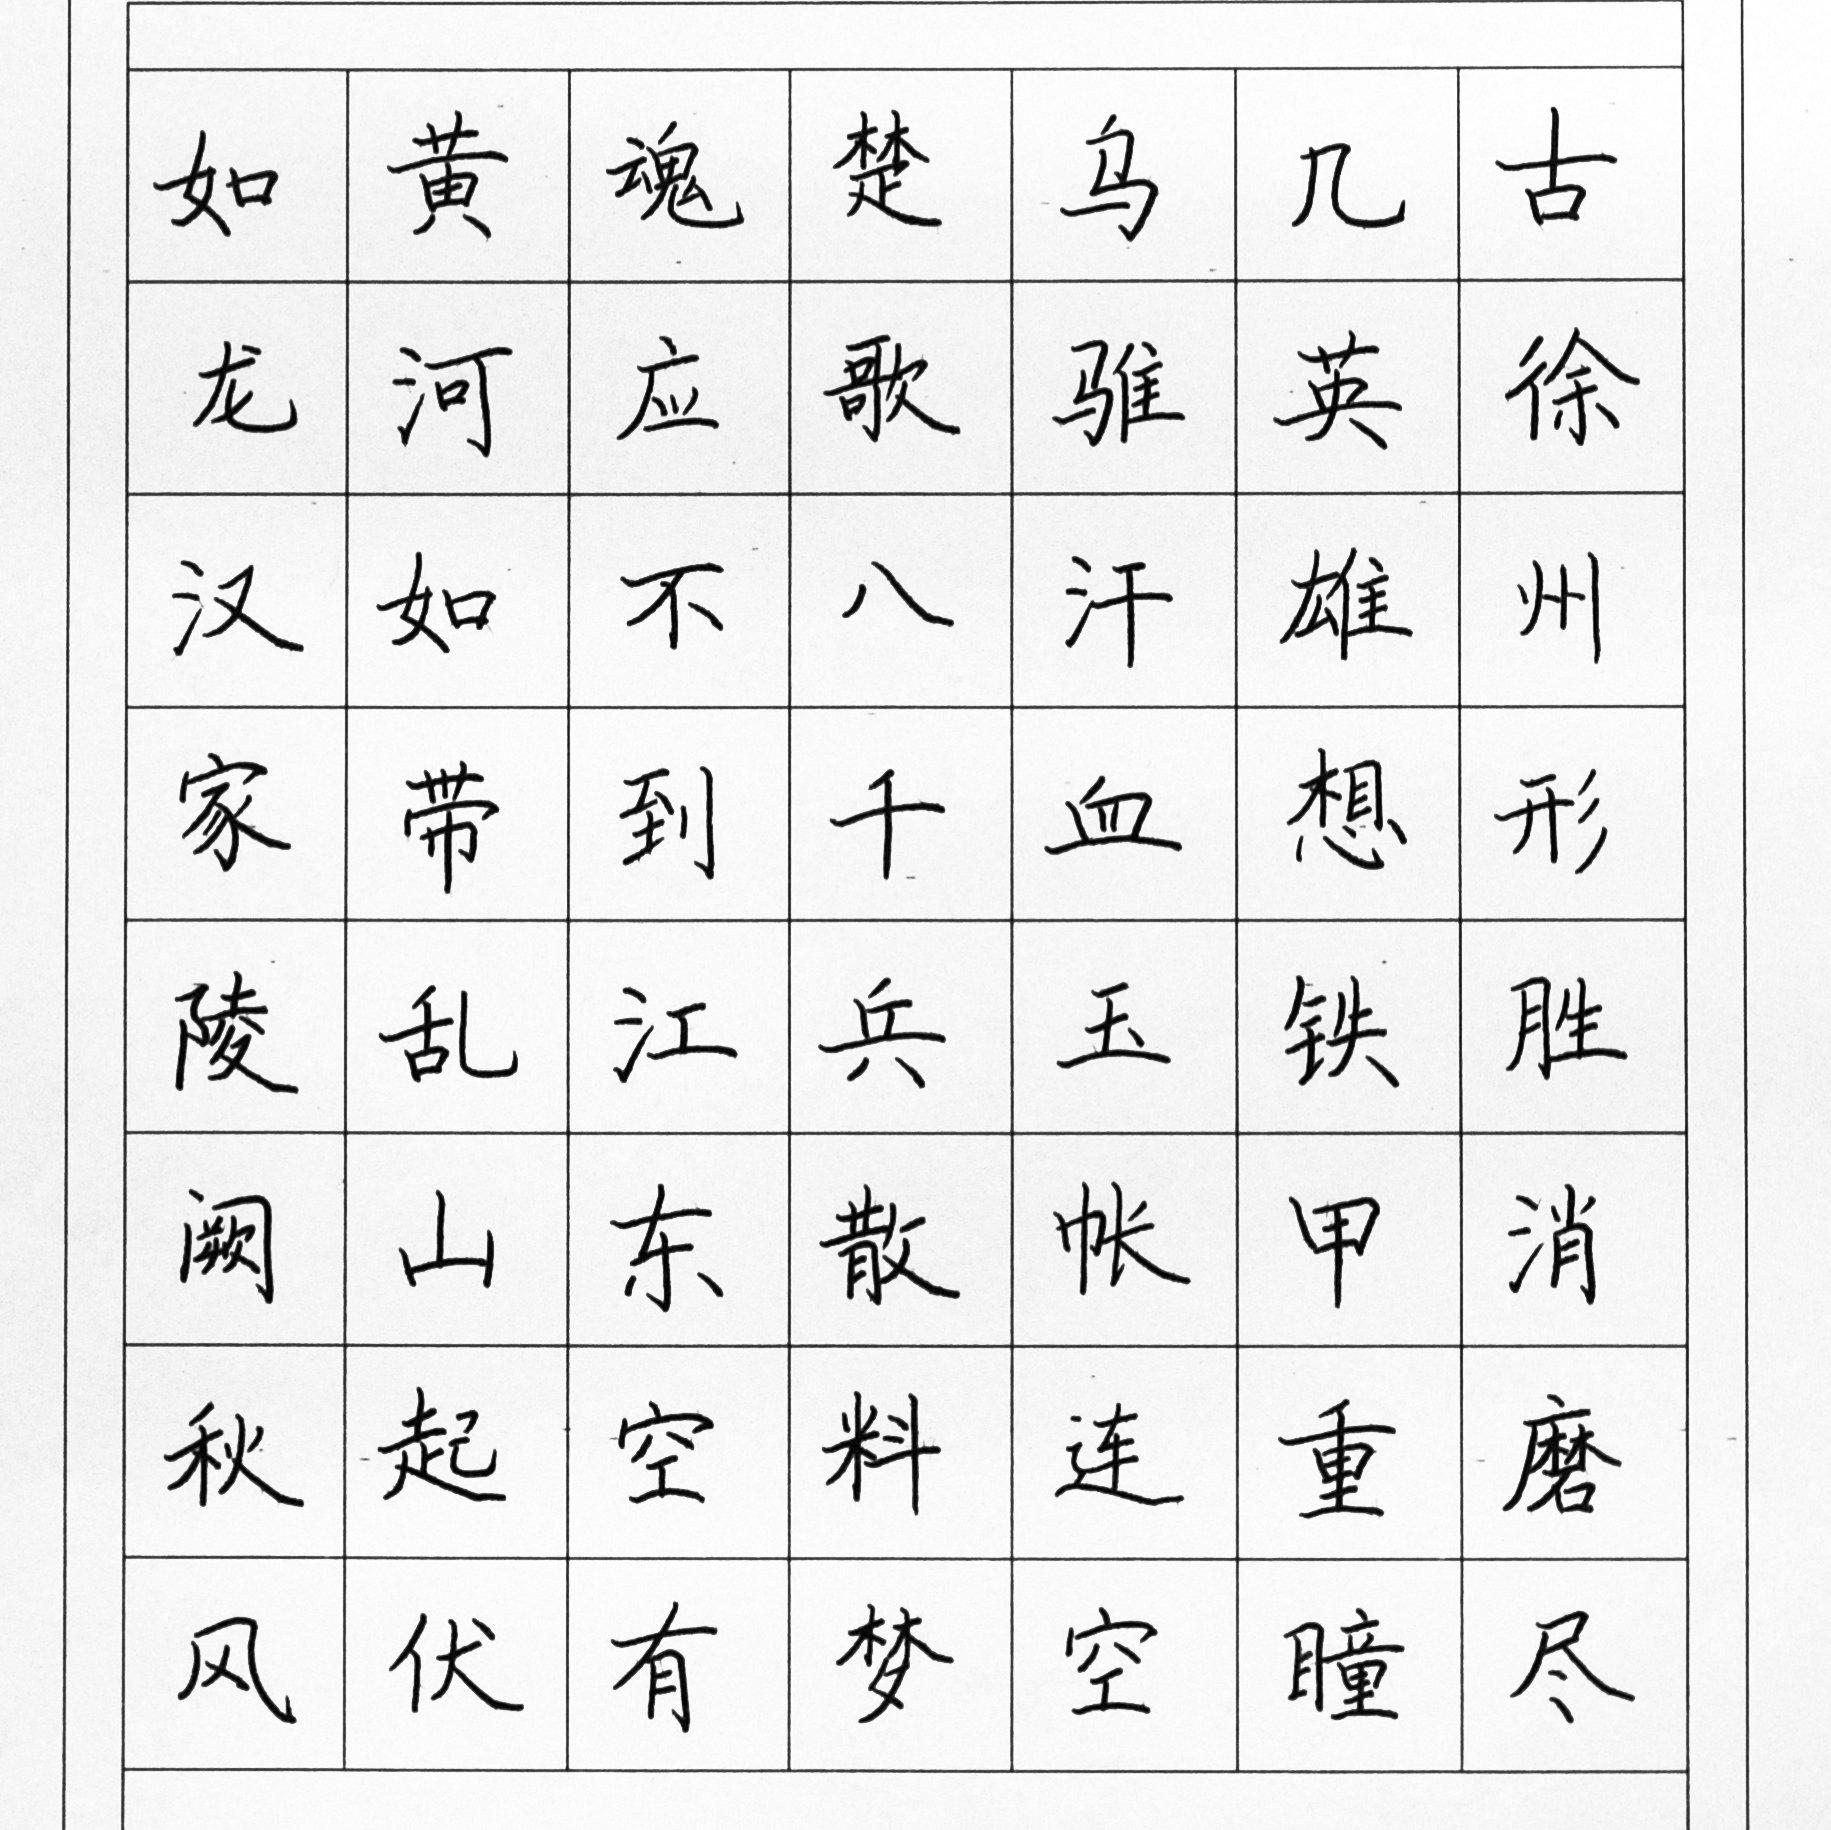 古徐州形胜消磨尽
几英雄想铁甲重瞳
乌骓汗血玉帐连空
楚歌八千兵散料梦
魂应不到江东空有
黄河如带乱山起伏
如龙汉家陵阙秋风